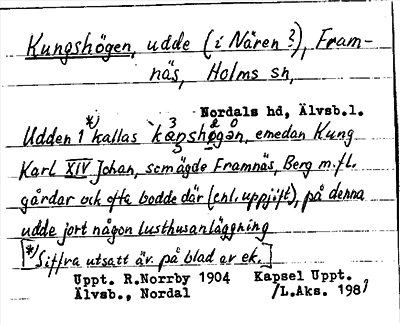 Kungshögen, udde (i Nären?), Fram-
näs, Holms sn,
Nordals hd, Älvsb.l.
Udden 1*) kallas kapshøgan, emedan Kung
Karl XIV Johan, som ägde Framnäs, Berg m.fl.
gårdar och ofta bodde där (enl. uppgift), på denna
udde gort någon lusthusanläggning
[*) Siffra utsatt äv. på blad av ek.]
Uppt. R.Norrby 1904 Kapsel Uppt.
Älvsb., Nordal /L.Aks. 198